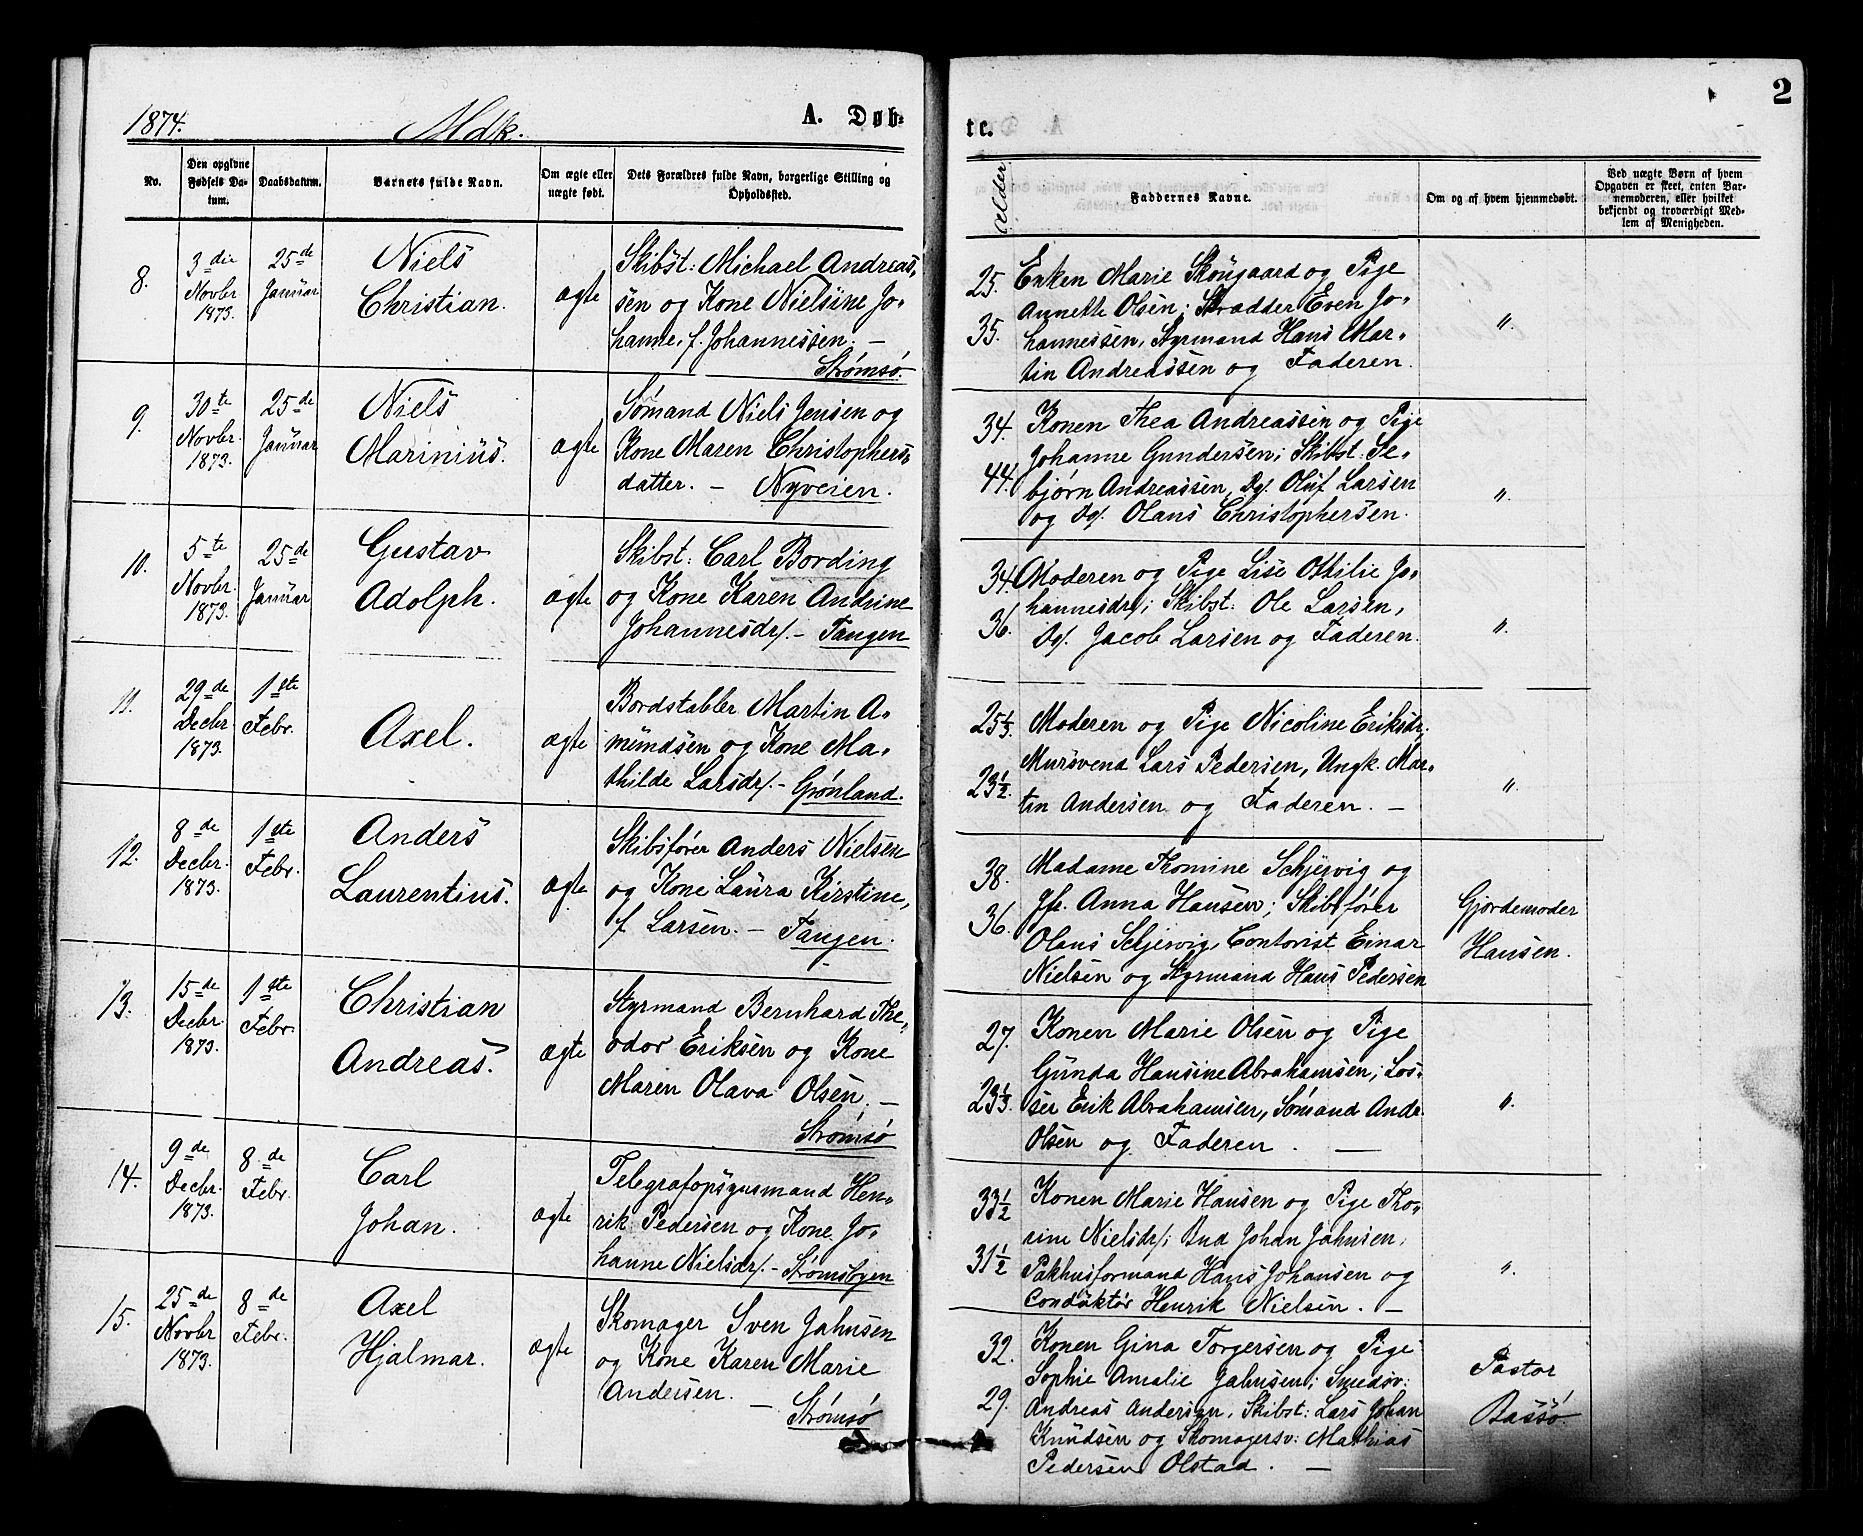 2
1874. Mdk. A. Døb- te.
No. Den opgivne Fødsels Datum. Daabsdatum. Barnets fulde Navn. Om ægte eller uægte født. Dets Forældres fulde Navn, borgerlige Stilling og Opholdssted. Alder Faddernes Navne. Om og af hvem hjemmedøbt. Ved uægte Børn af hvem Opgaven er skeet, enten Barnemoderen, eller hvilket bekjendt og troværdigt Medlem af Menigheden.
8.
3die
Novbr
1873.
25de
Januar
Niels
Christian.
ægte
Skibst: Michael Andreas-
sen og Kone Nielsine Jo-
hanne, f. Johannessen. —
Strømsø.
25.
35.
Enken Marie Skougaard og Pige
Annette Olsen; Skrædder Even Jo-
hannessen, Styrmand Hans Mar-
tin Andreassen og Faderen.
"
9.
30te
Novbr.
1873.
25de
Januar
Niels
Marinius.
ægte
Sømand Niels Jensen og
Kone Maren Christophers-
datter. — Nyveien.
34.
44.
Konen Thea Andreassen og Pige
Johanne Gundersen; Skibst: Se-
bjørn Andreassen, Do. Oluf Larsen
og Do. Olaus Christophersen.
"
10.
5te
Novbr.
1873.
25de
Januar
Gustav
Adolph.
ægte
Skibst: Carl Bording
og Kone Karen Andrine
Johannesdr. — Tangen
34.
36.
Moderen og Pige Lise Othilie Jo-
hannesdr; Skibst: Ole Larsen,
Do. Jacob Larsen og Faderen.
"
11.
29de
Decbr
1873.
1ste
Febr.
Axel.
ægte
Bordstabler Martin A-
mundsen og Kone Ma-
thilde Larsdr. — Grønland.
25 1/3
23 1/2.
Moderen og Pige Nicoline Eriksdr;
Mursvend Lars Pedersen, Ungk. Mar-
tin Andersen og Faderen. —
"
12.
8de
Decbr.
1873.
1ste
Febr.
Anders
Laurentius.
ægte
Skibsfører Anders Nielsen
og Kone Laura Kirstine,
f. Larsen. — Tangen.
38.
36.
Madame Thomine Schjervig og
Jfr. Anna Hansen; Skibsfører
Olaus Schjervig, Contorist Einar
Nielsen og Styrmand Hans Pedersen
Gjordemoder
Hansen.
13.
15de
Decbr
1873.
1ste
Febr.
Christian
Andreas.
ægte
Styrmand Bernhard The-
odor Eriksen og Kone
Maren Olava Olsen. —
Strømsø
27.
23 1/3
Konen Marie Olsen og Pige
Gunda Hansine Abrahamsen; Los-
ser Erik Abrahamsen, Sømand Andr.
Olsen og Faderen. —
"
14.
9de
Decbr.
1873.
8de
Febr.
Carl
Johan.
ægte
Telegrafopsynsmand Hen-
rik Pedersen og Kone Jo-
hanne Nielsdr. — Strømsbyen
33 1/2
31 1/2
Konen Marie Hansen og Pige Tho-
rine Nielsdr; Bud Johan Jahnsen,
Pakhusformand Hans Johansen og
Conduktør Henrik Nielsen. —
"
15.
25de
Novbr
1873.
8de
Febr.
Axel
Hjalmar.
ægte
Skomager Sven Jahnsen
og Kone Karen Marie
Andersen. —
Strømsø
32.
29.
Konen Gina Torgersen og Pige
Sophie Amalie Jahnsen; Smedsv:
Andreas Andersen, Skibst: Lars Johan
Knudsen og Skomagersv: Mathias
Pedersen Olstad. —
Pastor
Bassø